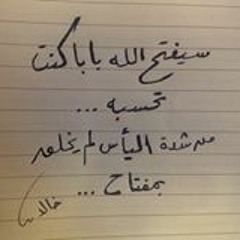 سيفتح الله بابا كنت
تحسبه ...
من شدة اليأس لم يخلق
بمفتاح ...